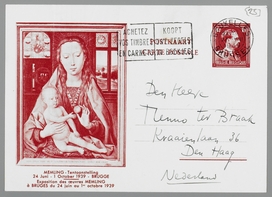 (25)
ACHETEZ KOOPT
VOS TIMBRES POSTZEGELS
EN CARNETS IN BOEKJES
POSTKAART
CARTE POSTALE
Den Heere
Menno ter Braak
Kraaienlaan 36
Den Haag
Nederland
MEMLING-Tentoonstelling
24 Juni - 1 October 1939 - BRUGGE
Exposition des œuvres MEMLING
à BRUGES du 24 juin au 1er octobre 1939